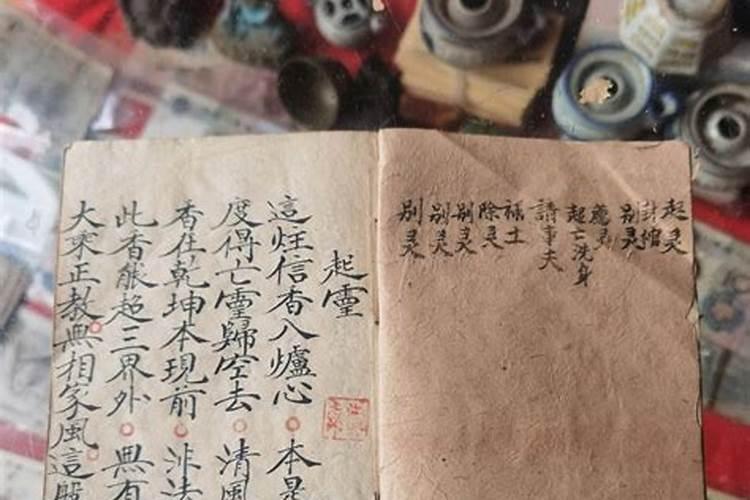 起灵
封棺
别灵
起亡洗身
請事夫
禄土
除灵
别灵
别灵
别灵
起靈
這炷信香入爐心 本是
度得亡靈歸空去 清風
香在乾坤本現前 non法
此香能超三界外 無有
大乘正教無相家風這般